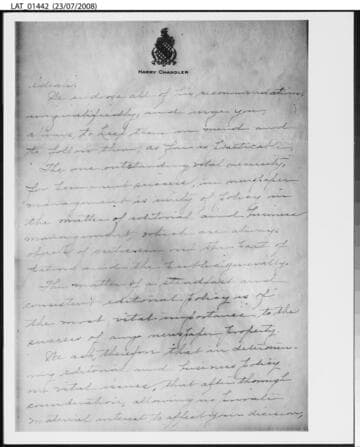 LAT_01442 (23/07/2008)
HARRY CHANDLER
ideas.
We endorse all of his recommendations,
unqualifiedly, and urge you,
to keep them in mind and
to follow them, as far as practicable.
The one outstanding vital necessity,
for permanent success, in newspaper
management is unity of policy in
the matter of editorial and business
management, which are always
objects of on the part of
and the public generally.
The matter of a steadfast and
consistent editorial policy is of
the most vital importance to the
success of any newspaper property.
We ask therefore that in determin-
ing editorial and business policy
on vital issues, that after thorough
consideration, allowing no private
material interest to affect your decision,